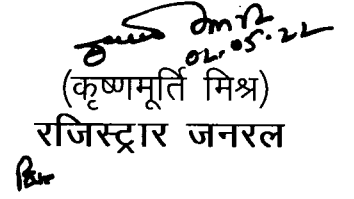 02.05.22
(कृष्णमूर्ति मिश्र)
रजिस्ट्रार जनरल